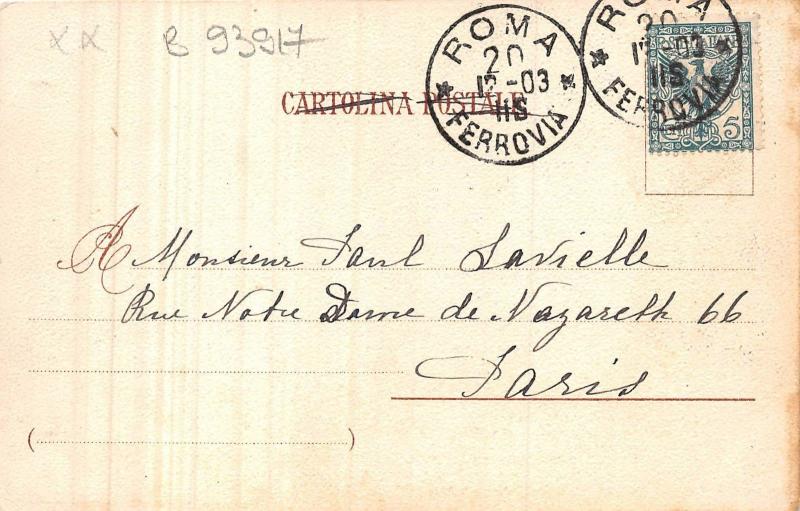 B 93917
ROMA
20
12-03
11S
FERROVIA
ROMA
20
-03
11S
FERROVIA
5
CARTOLINA POSTALE
A Monsieur Paul Lavielle
Rue Notre Dame de Nazareth 66
Paris